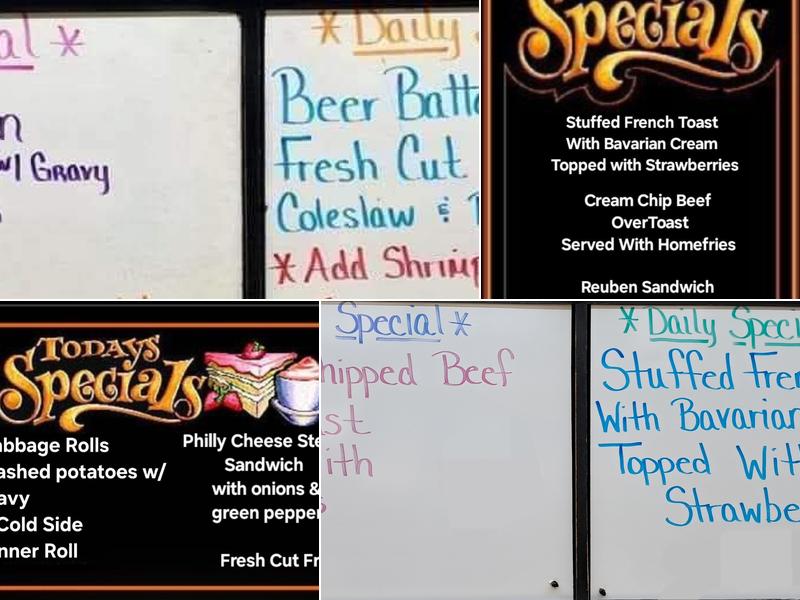 al *
w/ Gravy
* Daily
Beer Batt
Fresh Cut
Coleslaw &
* Add Shrimp
Specials
Stuffed French Toast
With Bavarian Cream
Topped with Strawberries
Cream Chip Beef
OverToast
Served With Homefries
Reuben Sandwich
TODAYS
Specials
abbage Rolls
ashed potatoes w/
avy
Cold Side
nner Roll
Philly Cheese Ste
Sandwich
with onions &
green pepper
Fresh Cut Fr
Special *
hipped Beef
st
ith
* Daily Speci
Stuffed Fren
With Bavarian
Topped Wit
Strawbe